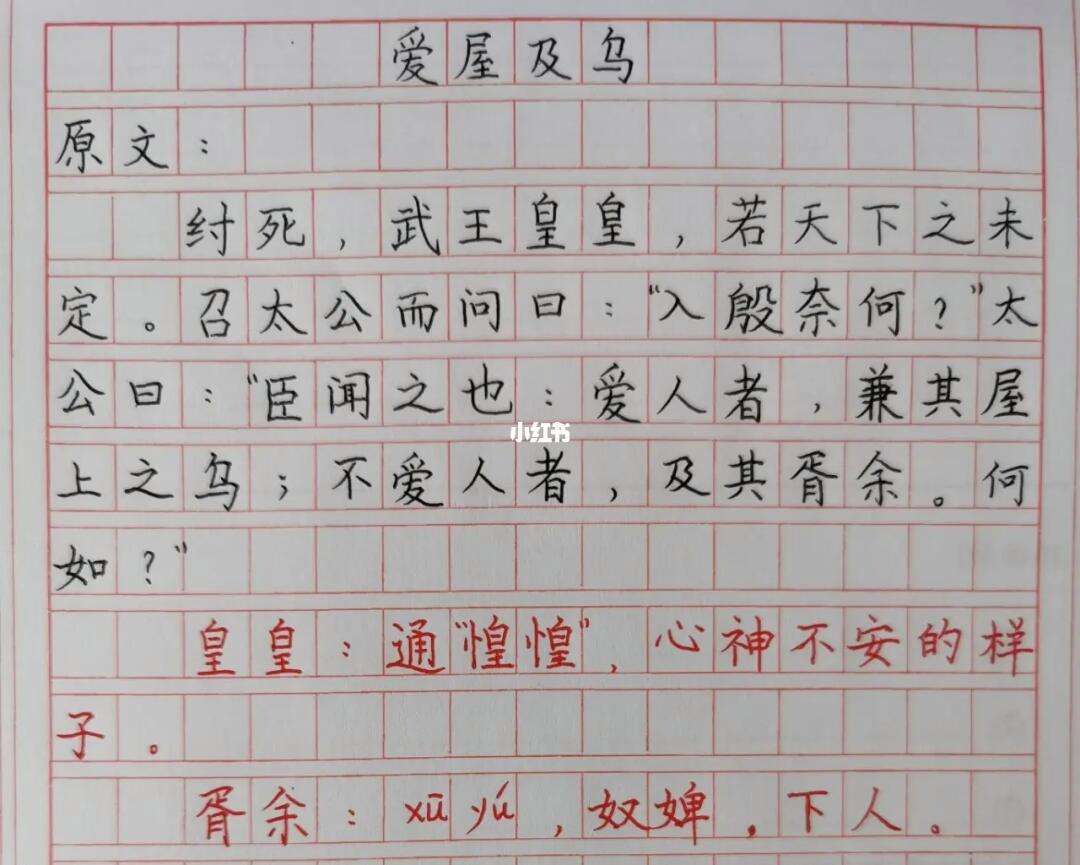 爱屋及乌
原文：
纣死，武王皇皇，若天下之未
定。召太公而问曰："入殷奈何？"太
公曰："臣闻之也：爱人者，兼其屋
小红书
上之乌；不爱人者，及其胥余。何
如？"
皇皇：通"惶惶"，心神不安的样
子。
胥余：xū yú，奴婢．下人。